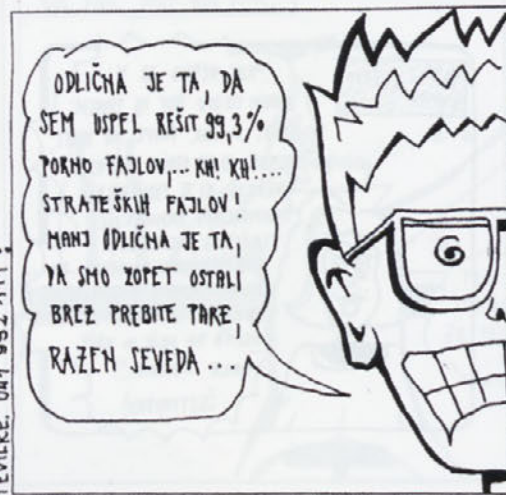 ODLIČNA JE TA, DA
SEM USPEL REŠIT 99,3%
PORNO FAJLOV,... KH! KH!....
STRATEŠKIH FAJLOV!
MANJ ODLIČNA JE TA,
DA SMO ZOPET OSTALI
BREZ PREBITE PARE,
RAZEN SEVEDA ...